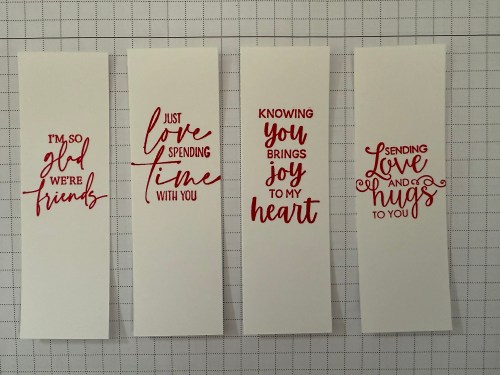 I'M SO
glad
WE'RE
friends
JUST
love
SPENDING
time
WITH YOU
KNOWING
you
BRINGS
joy
TO MY
heart
SENDING
Love
AND
hugs
TO YOU